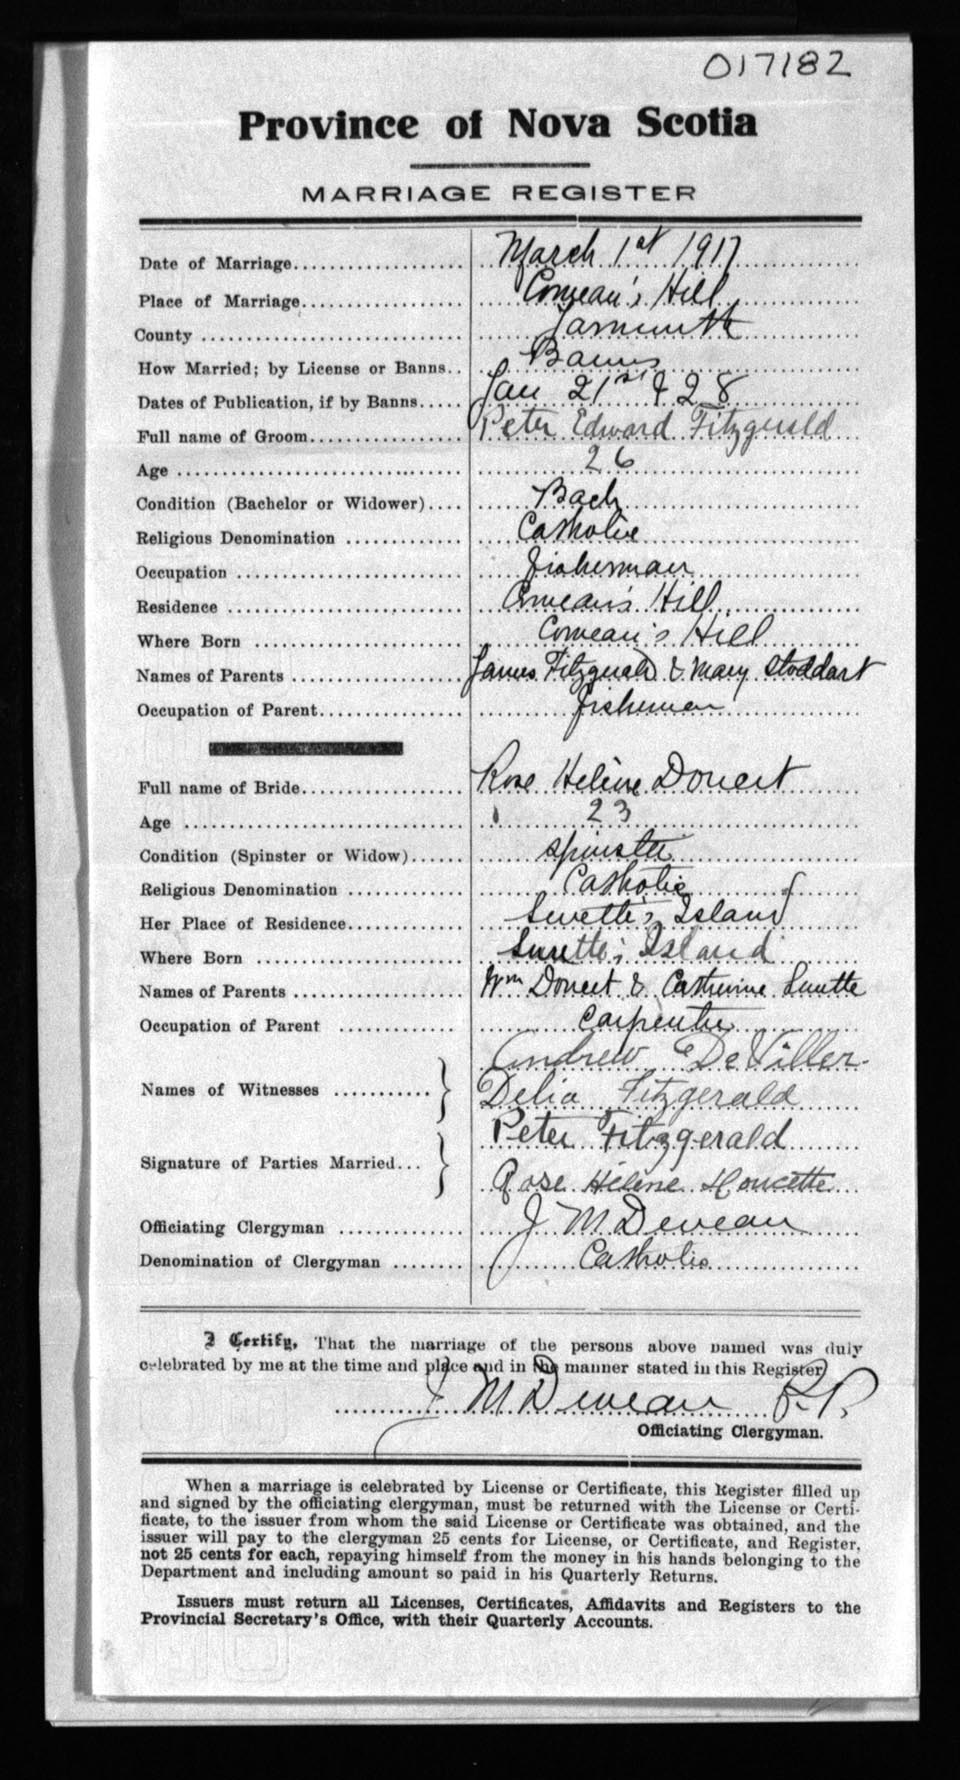 017182
Province of Nova Scotia
MARRIAGE REGISTER
Date of Marriage................... March 1st 1917
Place of Marriage................... Comeau's Hill
County ............................ Yarmouth
How Married; by License or Banns.. Banns
Dates of Publication, if by Banns..... Jan 21st & 28
Full name of Groom.................. Peter Edward Fitzgerald
Age ............................... 26
Condition (Bachelor or Widower).... Bach
Religious Denomination ............. Catholic
Occupation ......................... Fisherman
Residence .......................... Comeau's Hill
Where Born ........................ Comeau's Hill
Names of Parents ................... James Fitzgerald & Mary Stoddart
Occupation of Parent................. fisherman
Full name of Bride................... Rose Helène Doucet
Age ............................... 23
Condition (Spinster or Widow)...... Spinster
Religious Denomination ............. Catholic
Her Place of Residence.............. Surette's Island
Where Born ........................ Surette's Island
Names of Parents ................... Wm Doucet & Catherine Surette
Occupation of Parent ............... Carpenter
Andrew DeViller
Names of Witnesses ........... } Delia Fitzgerald
Peter Fitzgerald
Signature of Parties Married... } Rose Hélène Doucette
Officiating Clergyman ............... J M Deveau
Denomination of Clergyman ......... Catholic
I Certify, That the marriage of the persons above named was duly
celebrated by me at the time and place and in the manner stated in this Register
J M Deveau P.P.
Officiating Clergyman.
When a marriage is celebrated by License or Certificate, this Register filled up
and signed by the officiating clergyman, must be returned with the License or Certi-
ficate, to the issuer from whom the said License or Certificate was obtained, and the
issuer will pay to the clergyman 25 cents for License, or Certificate, and Register,
not 25 cents for each, repaying himself from the money in his hands belonging to the
Department and including amount so paid in his Quarterly Returns.
Issuers must return all Licenses, Certificates, Affidavits and Registers to the
Provincial Secretary's Office, with their Quarterly Accounts.